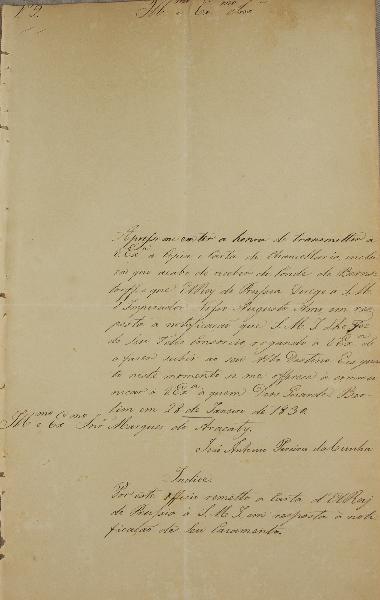 Nº 9.
Illmo e Exmo Snr
Apresso-me em ter a honra de transmetter a
V. Exª a Copia e Carta de Chancellaria inclu
que acabo de receber do Conde de Berns-
torff e que ElRey de Prussia dirige a S. M.
o Imperador Seu Augusto Amo em res-
posta a notificação que S. M. I. Lhe fez
do Seu Feliz Consorcio, rogando a V. Exª
o faça subir ao seu Alto Destino. Eis quan-
to neste momento se me offerece a commu-
nicar a V. Exª a quem Deos Guarde. Ber-
lim em 28 de Janeiro de 1830.
Illmo e Exmo Snr Marques do Aracaty.
José Antonio Pereira da Cunha
Indice.
Por este officio remetto a Carta d'ElRey
de Prussia a S. M. I. em resposta à noti-
ficação do Seu Cazamento.